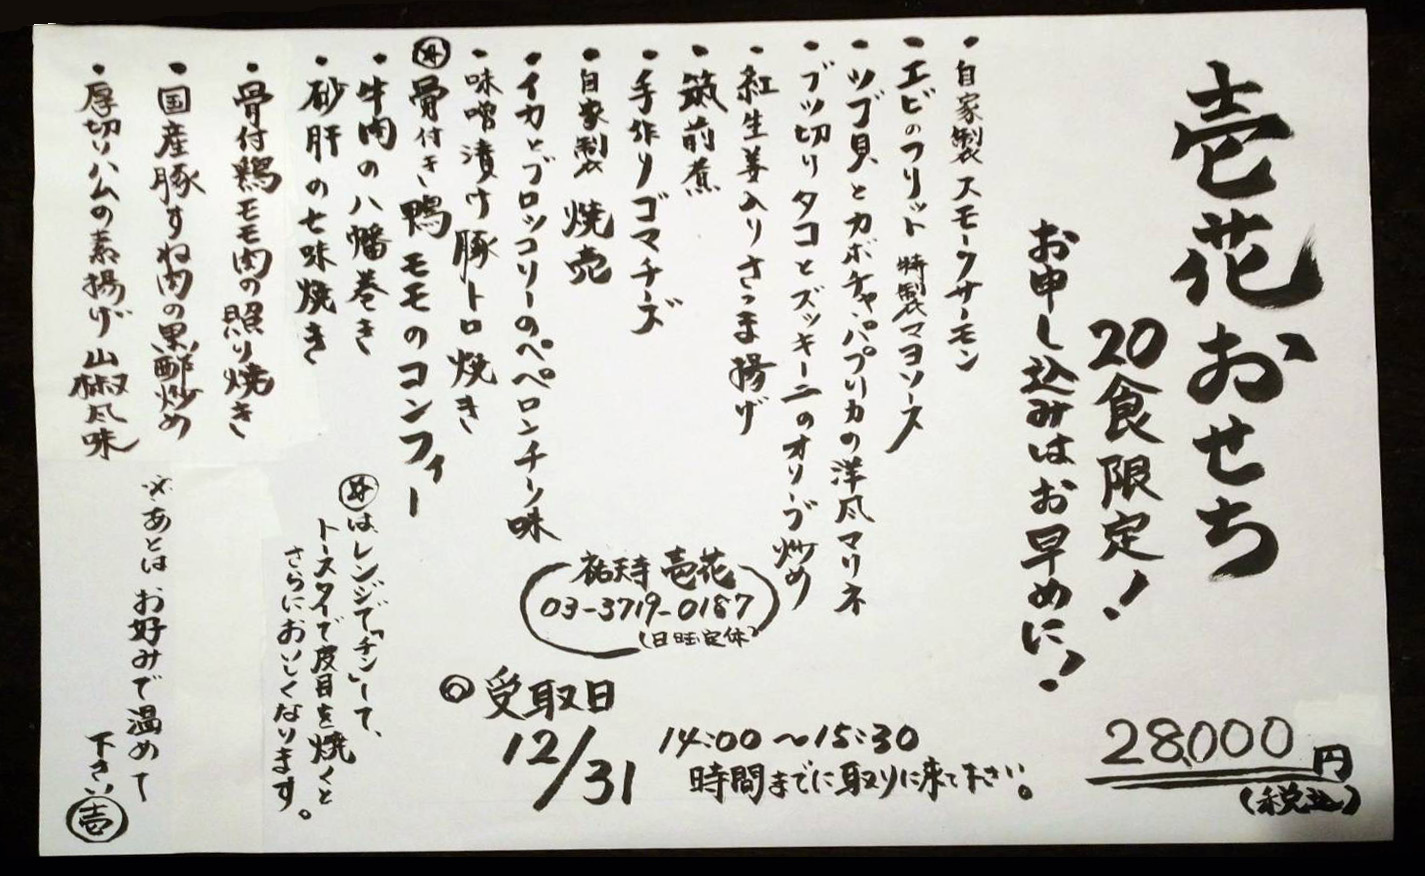 壱花おせち
20食限定!
お申し込みはお早めに!
28,000円
(税込)
・自家製スモークサーモン
・エビのフリット 特製マヨソース
・ツブ貝とカボチャ、パプリカの洋風マリネ
・ブツ切りタコとズッキーニのオリーブ炒め
・紅生姜入りさつま揚げ
・筑前煮
・手作りゴマチーズ
・自家製 焼売
・イカとブロッコリーのペペロンチーノ味
・味噌漬け豚トロ焼き
骨付き鴨モモのコンフィー
・牛肉の八幡巻き
・砂肝の七味焼き
・骨付鶏モモ肉の照り焼き
・国産豚すね肉の黒酢炒め
・厚切りハムの素揚げ 山椒風味
祐天寺 壱花
03-3719-0187
(日曜定休)
◎受取日
12/31
14:00〜15:30
時間までに取りに来て下さい。
はレンジで「チン」して、
トースターで皮目を焼くと
さらにおいしくなります。
※あとはお好みで温めて
下さい 壱